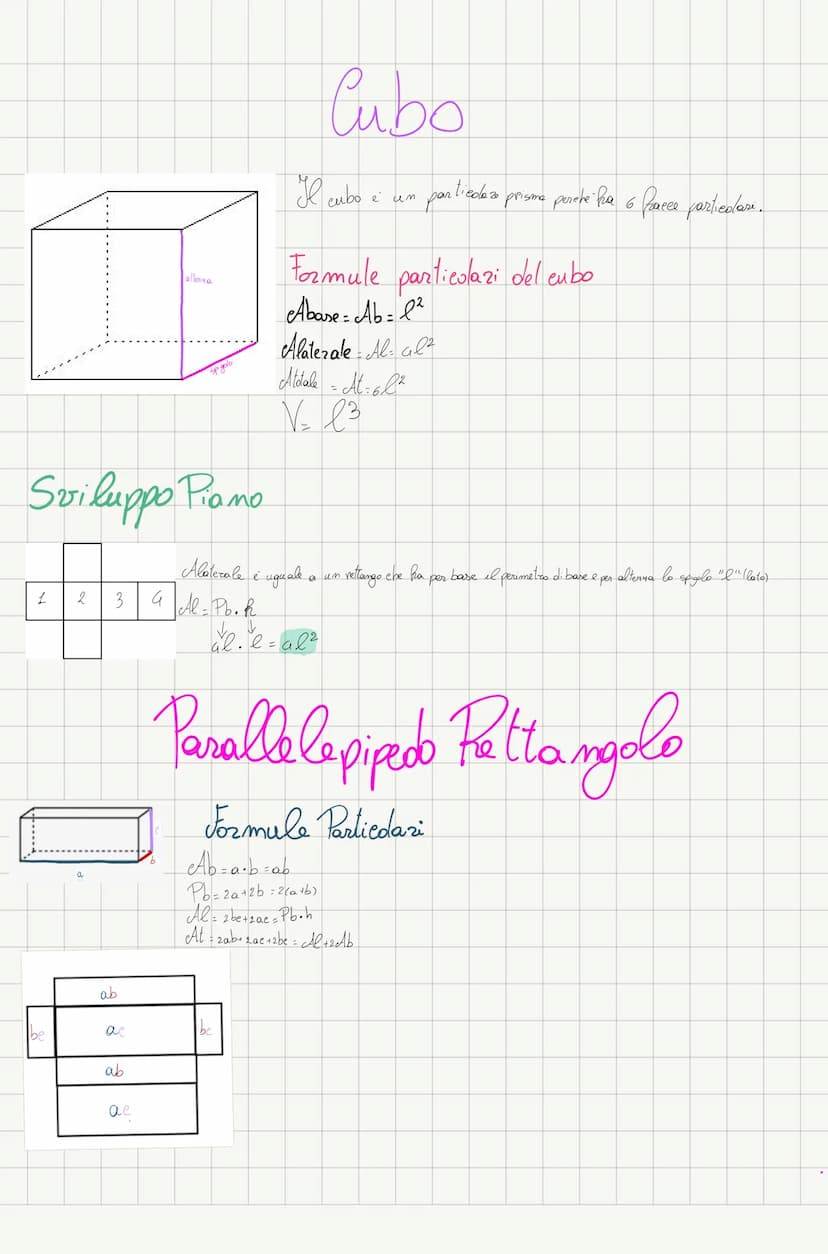 Cubo
Il cubo è un particolare prisma perché ha 6 facce particolari.
altezza
spigolo
Formule particolari del cubo
Abase = Ab = l²
Alaterale = Al = 4l²
Atotale = At = 6l²
V = l³
Sviluppo Piano
Alaterale è uguale a un rettango che ha per base il perimetro di base e per altezza lo spigolo "l" (lato)
1 2 3 4
Al = Pb . h
↓ ↓
4l . l = 4l²
Parallelepipedo Rettangolo
Formule Particolari
c
b
a
Ab = a·b = ab
Pb = 2a+2b = 2(a+b)
Al = 2bc+2ac = Pb·h
At = 2ab+2ac+2bc = Al+2Ab
ab
bc ac bc
ab
ac